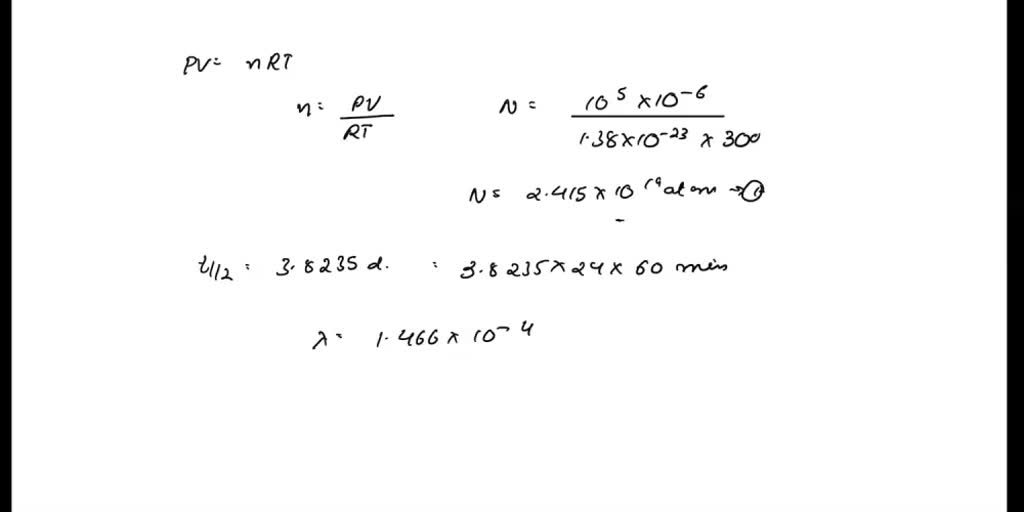 PV= nRT
n= PV/RT N = 10^5 x10^-6 / 1.38x10^-23 x 300
N= 2.415 x 10^19 atom → ①
t1/2 = 3.8235 d. = 3.8235 x 24 x 60 min
λ= 1.466 x 10^-4